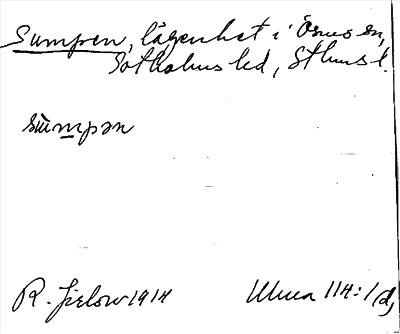 Sumpen, lägenhet i Ösmo sn,
Sotholms hd, Sthms l.
sùmpən
R. Jirlow 1914 Ulma 114:1 d,